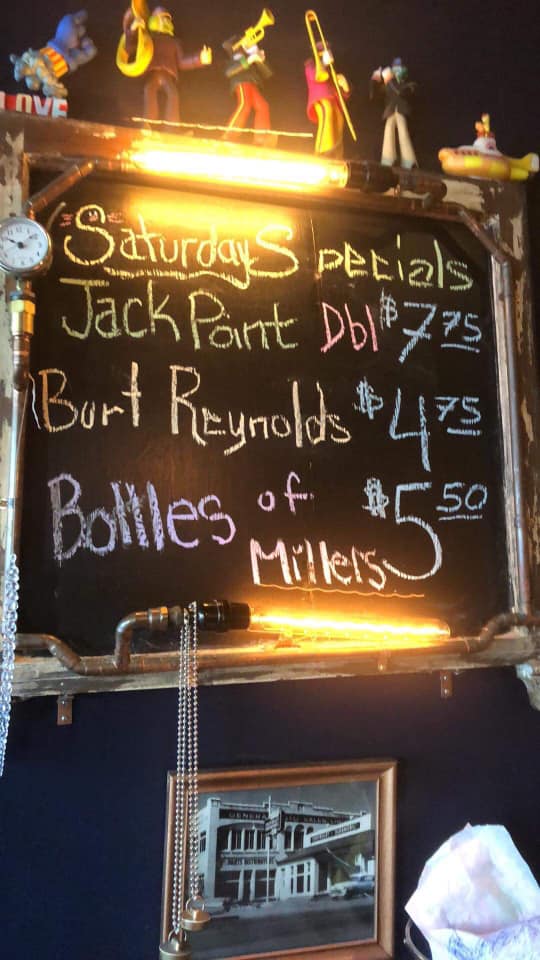 LOVE
Saturday Specials
Jack Point Dbl $7.75
Burt Reynolds $4.75
Bottles of $5.50
Millers
GENERAL